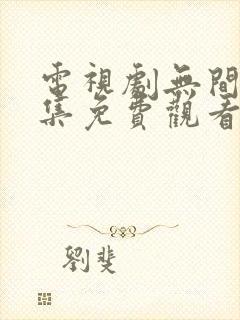 電視劇無間
集免費觀看
劉斐